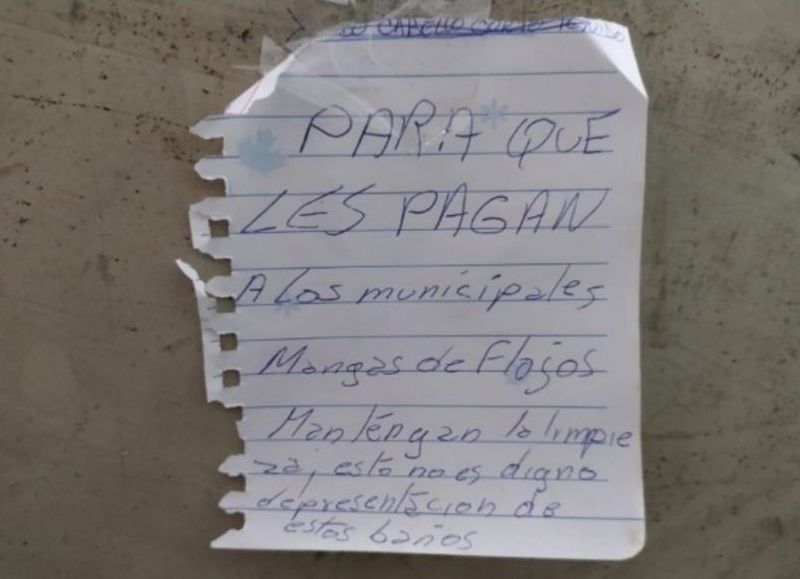 CABELLO CORTO TEÑIDO
PARA QUE
LES PAGAN
A Los municipales
Mangas de Flojos
Manténgan la limpie
za, esto no es digno
de presentación de
estos baños